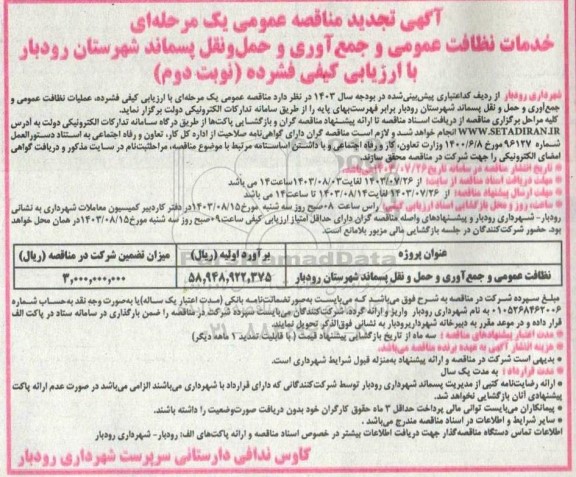 آگهی تجدید مناقصه عمومی یک مرحله‌ای
خدمات نظافت عمومی و جمع‌آوری و حمل‌ونقل پسماند شهرستان رودبار
با ارزیابی کیفی فشرده (نوبت دوم)
شهرداری رودبار از ردیف کداعتباری پیش‌بینی‌شده در بودجه سال ۱۴۰۳ در نظر دارد مناقصه عمومی یک مرحله‌ای با ارزیابی کیفی فشرده، عملیات نظافت عمومی و
جمع‌آوری و حمل و نقل پسماند شهرستان رودبار برابر فهرست‌بهای پایه را از طریق سامانه تدارکات الکترونیکی دولت برگزار نماید.
کلیه مراحل برگزاری مناقصه از دریافت اسناد مناقصه تا ارائه پیشنهاد مناقصه گران و بازگشایی پاکت‌ها از طریق درگاه سامانه تدارکات الکترونیکی دولت به آدرس
WWW.SETADIRAN.IR انجام خواهد شد و لازم است مناقصه گران دارای گواهی‌نامه صلاحیت از اداره کل کار، تعاون و رفاه اجتماعی به استناد دستورالعمل
شماره ۹۶۱۲۷ مورخ ۱۴۰۰/۶/۸ وزارت تعاون، کار و رفاه اجتماعی و یا داشتن اساسنامه مرتبط با موضوع مناقصه، مراحل‌ثبت‌نام در سایت مذکور و دریافت گواهی
امضای الکترونیکی را جهت شرکت در مناقصه محقق سازند.
* تاریخ انتشار مناقصه در سامانه تاریخ ۱۴۰۳/۰۷/۲۶ می‌باشد.
* مهلت دریافت اسناد مناقصه از سایت: از ۱۴۰۳/۰۷/۲۶ لغایت ۱۴۰۳/۰۸/۰۳ساعت۱۴ می باشد
* مهلت ارسال پیشنهاد مناقصه: از ۱۴۰۳/۰۷/۲۶ لغایت ۱۴۰۳/۰۸/۱۴ تا ساعت۱۴ می باشد
* ساعت، روز و محل بازگشایی اسناد ارزیابی کیفی: راس ساعت ۰۸صبح روز سه شنبه مورخ ۱۴۰۳/۰۸/۱۵در دفتر کاردبیر کمیسیون معاملات شهرداری به نشانی
رودبار- شهرداری رودبار و پیشنهادهای واصله مناقصه گران دارای حداقل امتیاز ارزیابی کیفی ساعت۰۹صبح روز سه شنبه مورخ۱۴۰۳/۰۸/۱۵در همان محل خواهد
بود. حضور شرکت‌کنندگان در جلسه بازگشایی مالی مزبور بلامانع است.
عنوان پروژه برآورد اولیه (ریال) میزان تضمین شرکت در مناقصه (ریال)
نظافت عمومی و جمع‌آوری و حمل و نقل پسماند شهرستان رودبار ۵۸,۹۴۸,۹۲۲,۳۷۵ ۳,۰۰۰,۰۰۰,۰۰۰
مبلغ سپرده شرکت در مناقصه به شرح فوق می‌باشد که می‌بایست به‌صورت ضمانت‌نامه بانکی (مدت اعتبار یک ساله)یا به‌صورت وجه نقد به‌حساب شماره
۰۱۰۵۲۶۸۴۶۲۰۰۶ به نام شهرداری رودبار واریز و ارائه گردد. شرکت‌کنندگان می‌بایست سپرده شرکت در مناقصه را ضمن بارگذاری در سامانه ستاد در پاکت الف
قرار داده و در موعد مقرر به دبیرخانه شهرداریرودبار به نشانی فوق‌الذکر تحویل نمایند.
* مدت اعتبار پیشنهادهای مناقصه: سه ماه از تاریخ بازگشایی پیشنهاد قیمت (با قابلیت تمدید ۱ ماهه دیگر)
* هزینه انتشار آگهی به عهده برنده مناقصه می‌باشد.
* بدیهی است شرکت در مناقصه و ارائه پیشنهاد به‌منزله قبول شرایط شهرداری است.
* مدت قرارداد: به مدت یک سال
* ارائه رضایت‌نامه کتبی از مدیریت پسماند شهرداری رودبار توسط شرکت‌کنندگانی که دارای قرارداد با شهرداری می‌باشند الزامی می‌باشد در صورت عدم ارائه پاکت
پیشنهادی آنان بازگشایی نخواهد شد.
* پیمانکاران می‌بایست توانی مالی پرداخت حداقل ۳ ماه حقوق کارگران خود بدون دریافت صورت‌وضعیت را داشته باشند.
* سایر شرایط و اطلاعات در اسناد مناقصه مندرج می‌باشد.
اطلاعات تماس دستگاه مناقصه‌گذار جهت دریافت اطلاعات بیشتر در خصوص اسناد مناقصه و ارائه پاکت‌های الف: رودبار- شهرداری رودبار
کاوس ندافی دارستانی سرپرست شهرداری رودبار